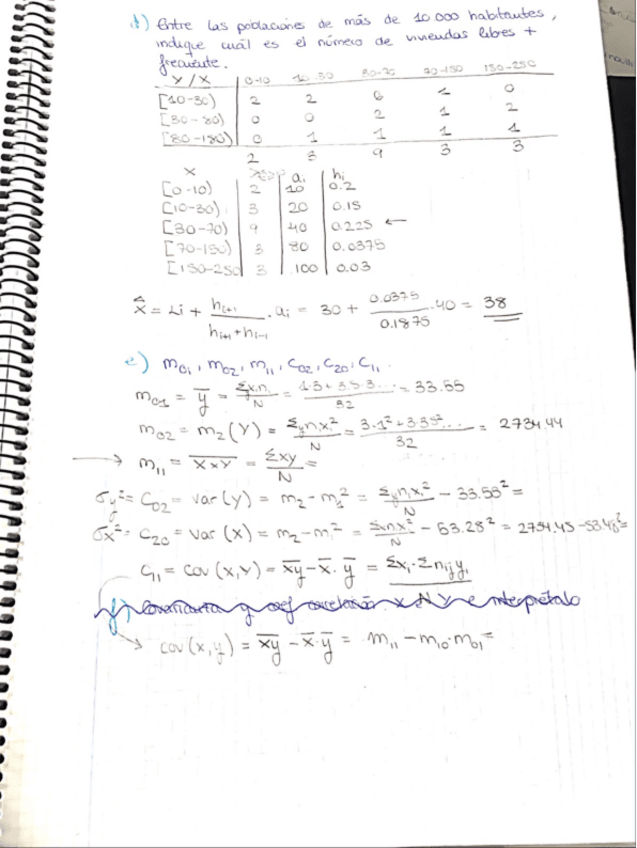 d) Entre las poblaciones de más de 10 000 habitantes,
indique cuál es el número de viviendas libres +
frecuente.
Y/X 0-10 10-30 30-70 70-150 150-250
[10-30) 2 2 6 1 0
[30-80) 0 0 2 1 2
[80-180) 0 1 1 1 1
2 3 9 3 3
X ai hi
[0-10) 2 10 0.2
[10-30) 3 20 0.15
[30-70) 9 40 0.225 ←
[70-150) 3 80 0.0375
[150-250 3 100 0.03
x̂ = Li + hi+1 / hi+1 + hi-1 . ai = 30 + 0.0375 / 0.1875 . 40 = 38
e) m01, m02, m11, C02, C20, C11.
m01 = ȳ = Σxini / N = 1.3 + 35.3... / 32 = 33.55
m02 = m2(Y) = Σynixi² / N = 3.1² + 3.35²... / 32 = 2734.44
→ m11 = x̄*ȳ = Σxy / N =
σy² = C02 = var(Y) = m2 - m1² = Σynixi² / N - 33.55² =
σx² = C20 = var(X) = m2 - m1² = Σxnixi² / N - 53.28² = 2734.45 - 53.48² =
C11 = cov(X,Y) = x̄ȳ - x̄.ȳ = Σxi . Σnij yj
f) Covarianza y coef correlación X Y e interprétalo
cov(x,y) = x̄ȳ - x̄.ȳ = m11 - m10.m01 =